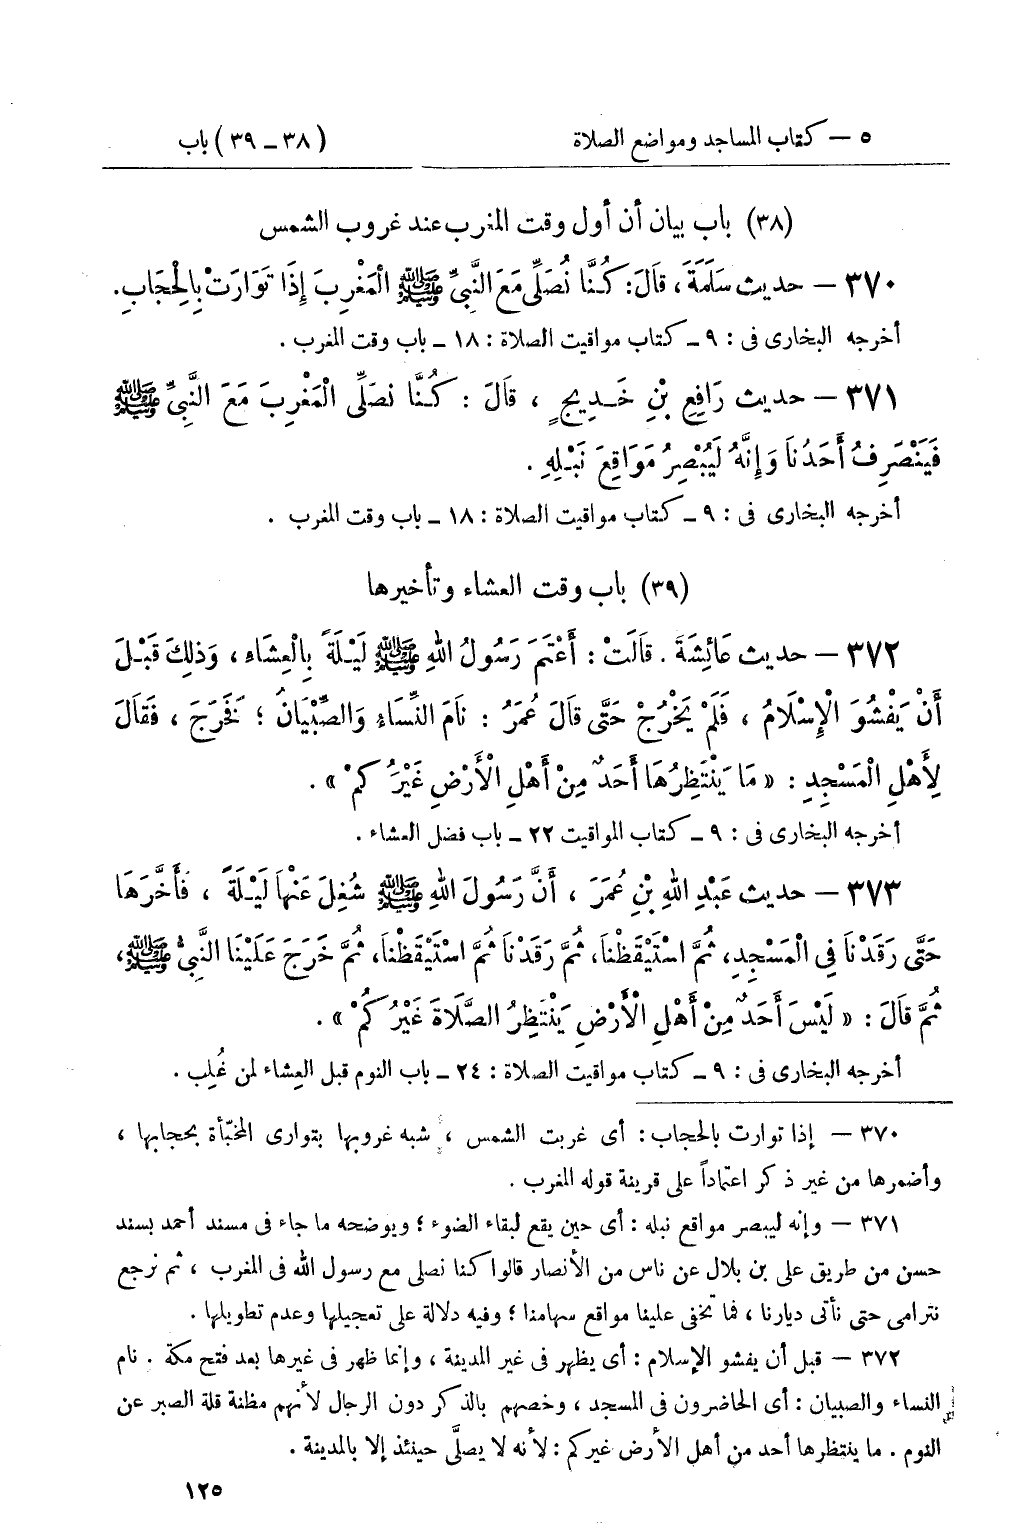 ٥ — كتاب المساجد ومواضع الصلاة (٣٨ – ٣٩) باب
(٣٨) باب بيان أن أول وقت المغرب عند غروب الشمس
٣٧٠ — حديث سَلَمَةَ، قَالَ: كُنَّا نُصَلِّي مَعَ النَّبِيِّ ﷺ الْمَغْرِبَ إِذَا تَوَارَتْ بِالْحِجَابِ.
أخرجه البخارى فى : ٩ ـ كتاب مواقيت الصلاة : ١٨ ـ باب وقت المغرب .
٣٧١ — حديث رَافِعِ بْنِ خَدِيجٍ ، قَالَ : كُنَّا نُصَلِّى الْمَغْرِبَ مَعَ النَّبِىِّ ﷺ
فَيَنْصَرِفُ أَحَدُنَا وَإِنَّهُ لَيُبْصِرُ مَوَاقِعَ نَبْلِهِ .
أخرجه البخارى فى : ٩ ـ كتاب مواقيت الصلاة : ١٨ ـ باب وقت المغرب .
(٣٩) باب وقت العشاء وتأخيرها
٣٧٢ — حديث عَائِشَةَ . قَالَتْ : أَعْتَمَ رَسُولُ اللهِ ﷺ لَيْلَةً بِالْعِشَاءِ ، وَذلِكَ قَبْلَ
أَنْ يَفْشُوَ الْإِسْلَامُ ، فَلَمْ يَخْرُجْ حَتَّى قَالَ عُمَرُ : نَامَ النِّسَاءُ وَالصِّبْيَانُ ؛ فَخَرَجَ ، فَقَالَ
لِأَهْلِ الْمَسْجِدِ : « مَا يَنْتَظِرُهَا أَحَدٌ مِنْ أَهْلِ الْأَرْضِ غَيْرُ كُمْ » .
أخرجه البخارى فى : ٩ ـ كتاب المواقيت ٢٢ ـ باب فضل العشاء .
٣٧٣ — حديث عَبْدِ اللهِ بْنِ عُمَرَ ، أَنَّ رَسُولَ اللهِ ﷺ شُغِلَ عَنْهَا لَيْلَةً ، فَأَخَّرَهَا
حَتَّى رَقَدْنَا فِى الْمَسْجِدِ، ثُمَّ اسْتَيْقَظْنَا، ثُمَّ رَقَدْنَا ثُمَّ اسْتَيْقَظْنَا، ثُمَّ خَرَجَ عَلَيْنَا النَّبِىُّ ﷺ،
ثُمَّ قَالَ : « لَيْسَ أَحَدٌ مِنْ أَهْلِ الْأَرْضِ يَنْتَظِرُ الصَّلَاةَ غَيْرُ كُمْ » .
أخرجه البخارى فى : ٩ ـ كتاب مواقيت الصلاة : ٢٤ ـ باب النوم قبل العِشاء لمن غُلِب .
٣٧٠ — إذا توارت بالحجاب : أى غربت الشمس ، شبه غروبها بتوارى المخبّأة بحجابها ،
وأضمرها من غير ذكر اعتماداً على قرينة قوله المغرب .
٣٧١ — وإنه ليبصر مواقع نبله : أى حين يقع لبقاء الضوء ؛ ويوضحه ما جاء فى مسند أحمد بسند
حسن من طريق على بن بلال عن ناس من الأنصار قالوا كنا نصلى مع رسول الله فى المغرب ، ثم نرجع
نترامى حتى نأتى ديارنا ، فما تخفى علينا مواقع سهامنا ؛ وفيه دلالة على تعجيلها وعدم تطويلها .
٣٧٢ — قبل أن يفشو الإسلام : أى يظهر فى غير المدينة ، وإنما ظهر فى غيرها بعد فتح مكة . نام
النساء والصبيان : أى الحاضرون فى المسجد ، وخصهم بالذكر دون الرجال لأنهم مظنة قلة الصبر عن
النوم . ما ينتظرها أحد من أهل الأرض غيركم : لأنه لا يصلَّى حينئذ إلا بالمدينة .
١٢٥